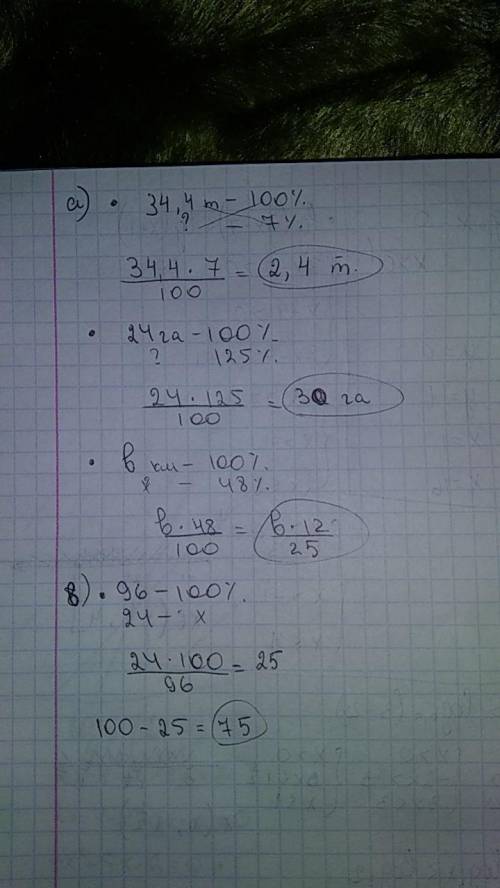 а) • 34,4 т – 100%.
? – 7%.
34,4 · 7 / 100 = 2,4 т.
• 24 га – 100%.
? 125%.
24 · 125 / 100 = 30 га
• в км – 100%.
x – 48%.
в · 48 / 100 = в · 12 / 25
в) • 96 – 100%.
24 – x
24 · 100 / 96 = 25
100 – 25 = 75